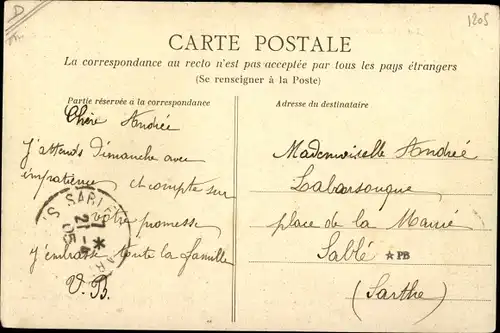 1205
CARTE POSTALE
La correspondance au recto n'est pas acceptée par tous les pays étrangers
(Se renseigner à la Poste)
Partie réservée à la correspondance
Chère Andrée
J'attends Dimanche avec
impatience et compte sur
votre promesse
J'embrasse toute la famille
V. B.
SABLÉ
21-4
05
Adresse du destinataire
Mademoiselle Andrée
place de la Mairie
Sablé ★PB
(Sarthe)